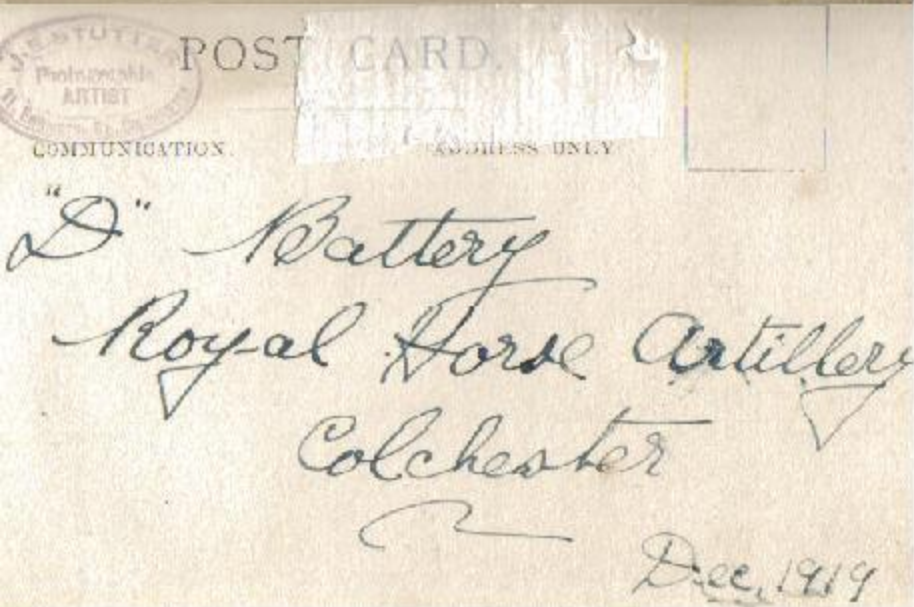 J.E. STUTTER
Photographic
ARTIST
POST CARD.
COMMUNICATION.
ADDRESS ONLY
"D" Battery
Royal Horse Artillery
Colchester
Dec, 1919